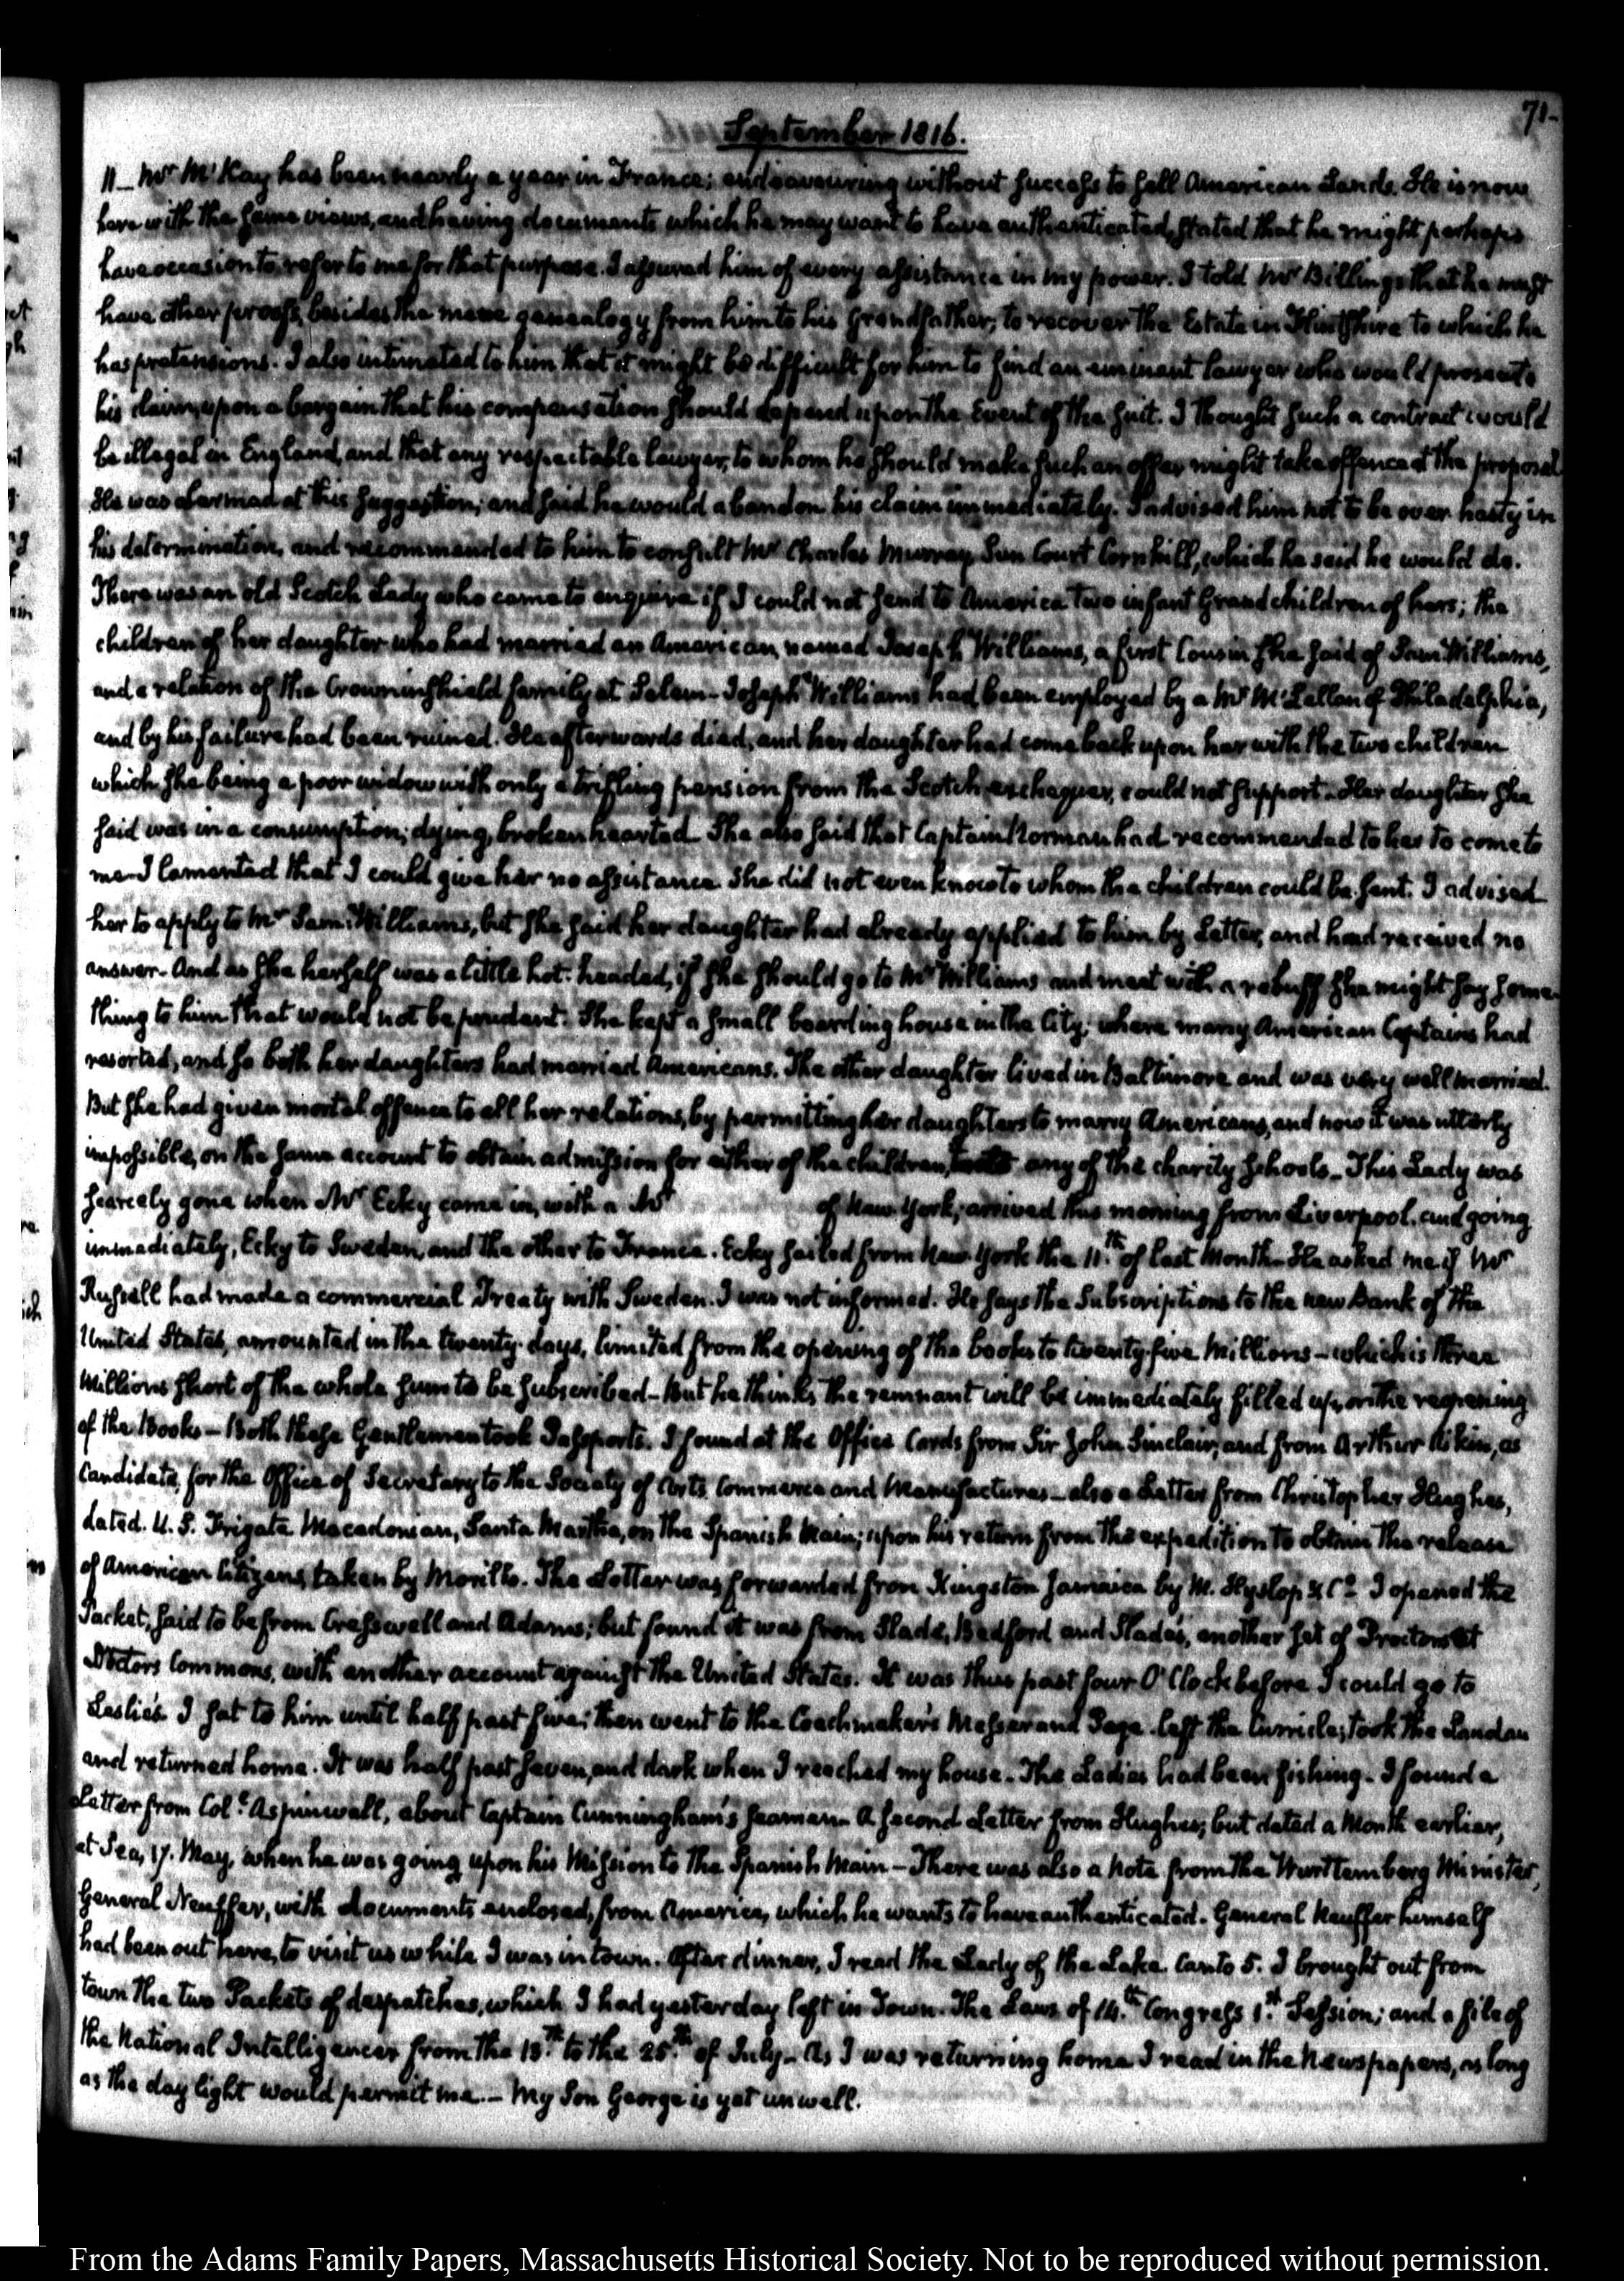 71-
September 1816.
11_ Mr. McKay has been nearly a year in France; endeavouring without success to sell American Lands. He is now
here with the same views, and having documents which he may want to have authenticated, stated that he might perhaps
have occasion to refer to me for that purpose. I assured him of every assistance in my power. I told Mr Billings that he must
have other proofs, besides the mere genealogy from him to his Grandfather, to recover the Estate in Flintshire to which he
has pretensions. I also intimated to him that it might be difficult for him to find an eminent lawyer who would prosecute
his claim, upon a bargain that his compensation should depend upon the Event of the suit. I thought such a contract would
be illegal in England, and that any respectable lawyer, to whom he should make such an offer might take offence at the proposal.
He was alarmed at this suggestion; and said he would abandon his claim immediately. I advised him not to be over hasty in
his determination, and recommended to him to consult Mr Charles Murray, Sun Court Cornhill, which he said he would do.
There was an old Scotch Lady who came to enquire if I could not send to America two infant Grandchildren of hers; the
children of her daughter who had married an American, named Joseph Williams, a first Cousin she said of Sam Williams,
and a relation of the Crowninshield family at Salem_ Joseph Williams had been employed by a Mr McLellan of Philadelphia,
and by his failure had been ruined. He afterwards died, and her daughter had come back upon her with the two children
which she being a poor widow with only a trifling pension from the Scotch exchequer, could not support_ Her daughter she
said was in a consumption; dying, broken hearted_ She also said that Captain Norman had recommended to her to come to
me_ I lamented that I could give her no assistance. She did not even know to whom the children could be sent. I advised
her to apply to Mr Sam: Williams, but she said her daughter had already applied to him by Letter, and had received no
answer_ And as she herself was a little hot-headed, if she should go to Mr Williams and meet with a rebuff she might say some-
thing to him that would not be prudent. She kept a small boarding house in the City; where many American Captains had
resorted, and so both her daughters had married Americans. The other daughter lived in Baltimore and was very well married.
But she had given mortal offence to all her relations, by permitting her daughters to marry Americans, and now it was utterly
impossible, on the same account to obtain admission for either of the children, any of the charity schools_ This Lady was
scarcely gone when Mr Ecky came in, with a Mr of New York; arrived this morning from Liverpool, and going
immediately, Ecky to Sweden, and the other to France. Ecky sailed from New York the 11th. of last Month_ He asked me if Mr
Russell had made a commercial Treaty with Sweden. I was not informed. He says the Subscriptions to the new Bank of the
United States, amounted in the twenty days, limited from the opening of the books to twenty-five Millions_ which is three
Millions short of the whole sum to be subscribed_ But he thinks the remnant will be immediately filled up, on the reopening
of the Books_ Both these Gentlemen took Passports. I found at the Office Cards from Sir John Sinclair, and from Arthur Aikin, as
Candidate for the Office of Secretary to the Society of Arts, Commerce and Manufactures_ also a Letter from Christopher Hughes,
dated. U.S. Frigate Macedonian, Santa Martha, on the Spanish Main; upon his return from the expedition to obtain the release
of American Citizens taken by Morillo. The Letter was forwarded from Kingston Jamaica by M. Hyslop & Co. I opened the
Packet, said to be from Cresswell and Adams; but found it was from Slade, Bedford and Slade's, another set of Proctors at
Doctors Commons, with another account against the United States. It was thus past four O'Clock before I could go to
Leslie's. I sat to him until half past five; then went to the Coachmaker's Messer and Page_ left the Curricle; took the Landau
and returned home. It was half past seven, and dark when I reached my house_ The Ladies had been fishing_ I found a
Letter from Coll. Aspinwall, about Captain Cunningham's seamen_ A second Letter from Hughes; but dated a Month earlier,
at Sea, 17. May, when he was going upon his Mission to the Spanish Main_ There was also a Note from the Wurttemberg Minister,
General Neuffer, with documents enclosed, from America, which he wants to have authenticated. General Neuffer himself
had been out here, to visit us while I was in town. After dinner, I read the Lady of the Lake. Canto 5. I brought out from
town the two Packets of despatches, which I had yesterday left in Town. The Laws of 14.th Congress 1.st Session; and a file of
the National Intelligencer from the 13.th to the 25.th of July_ As I was returning home I read in the Newspapers, as long
as the day light would permit me._ My Son George is yet unwell.
From the Adams Family Papers, Massachusetts Historical Society. Not to be reproduced without permission.